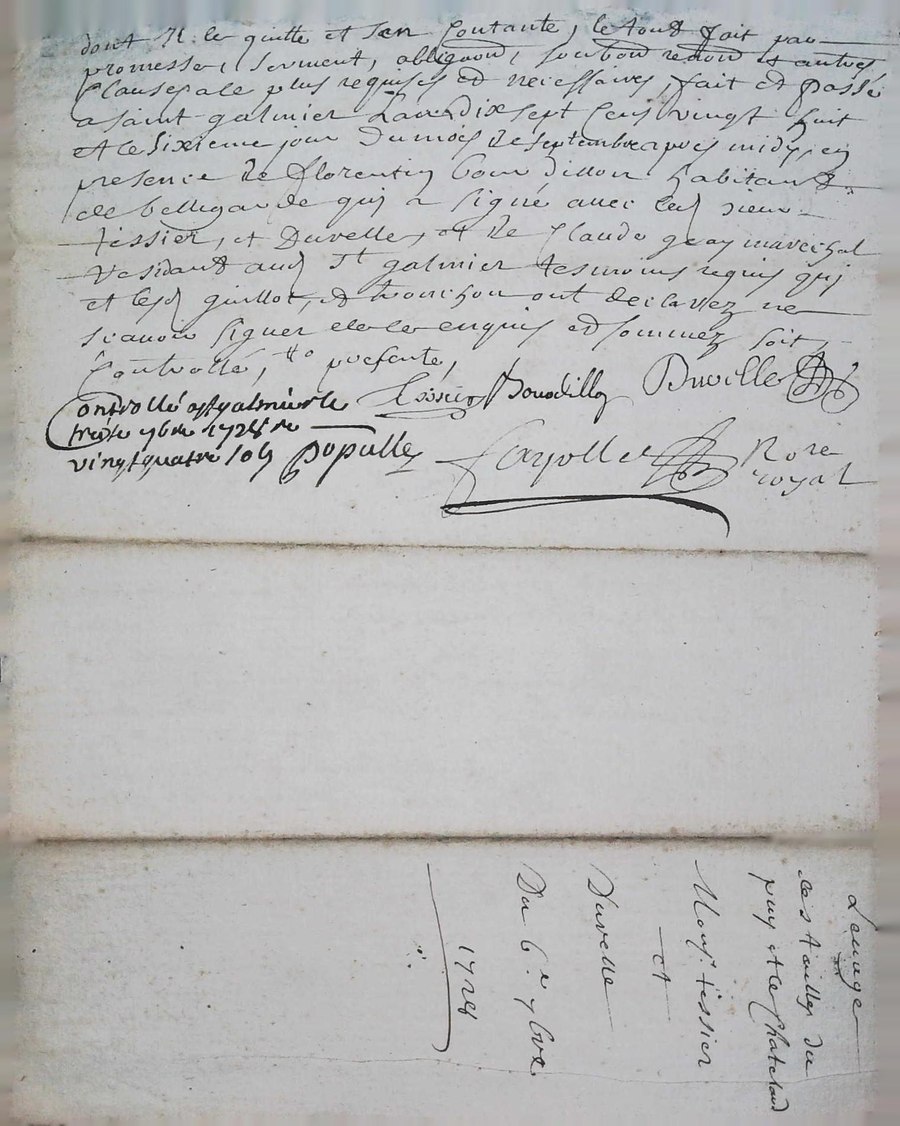 dont Il le quitte et sen Contante, le tout fait par
promesse, serment, obligaon, soubon renon et autres
Clauses ale plus requises et necessaires, fait et passé
a saint galmier Lan dix sept Cens vingt huit
et le sixieme jour du mois de septembre apres midy, en
presence de florentin Bourdillon habitant
de bellegarde qui a signé avec led sieur
tessier, et Duvelle, et de Claude geay marechal
residant aud St galmier tesmoins requis qui
et lesd guillot, et tronchon ont declarez ne
scavoir signer de ce enquis et sommez soit
Controllé, presente,
tessier Bourdillon Duvelle
Controllé a St galmier le
treize 7bre 1728 re
vingt quatre sols Populle
Fayolle Nore
royal
Louage
des tailles du
puy et le Chatelard
Monsr tessier
et
Duvelle
Du 6e 7bre
1728